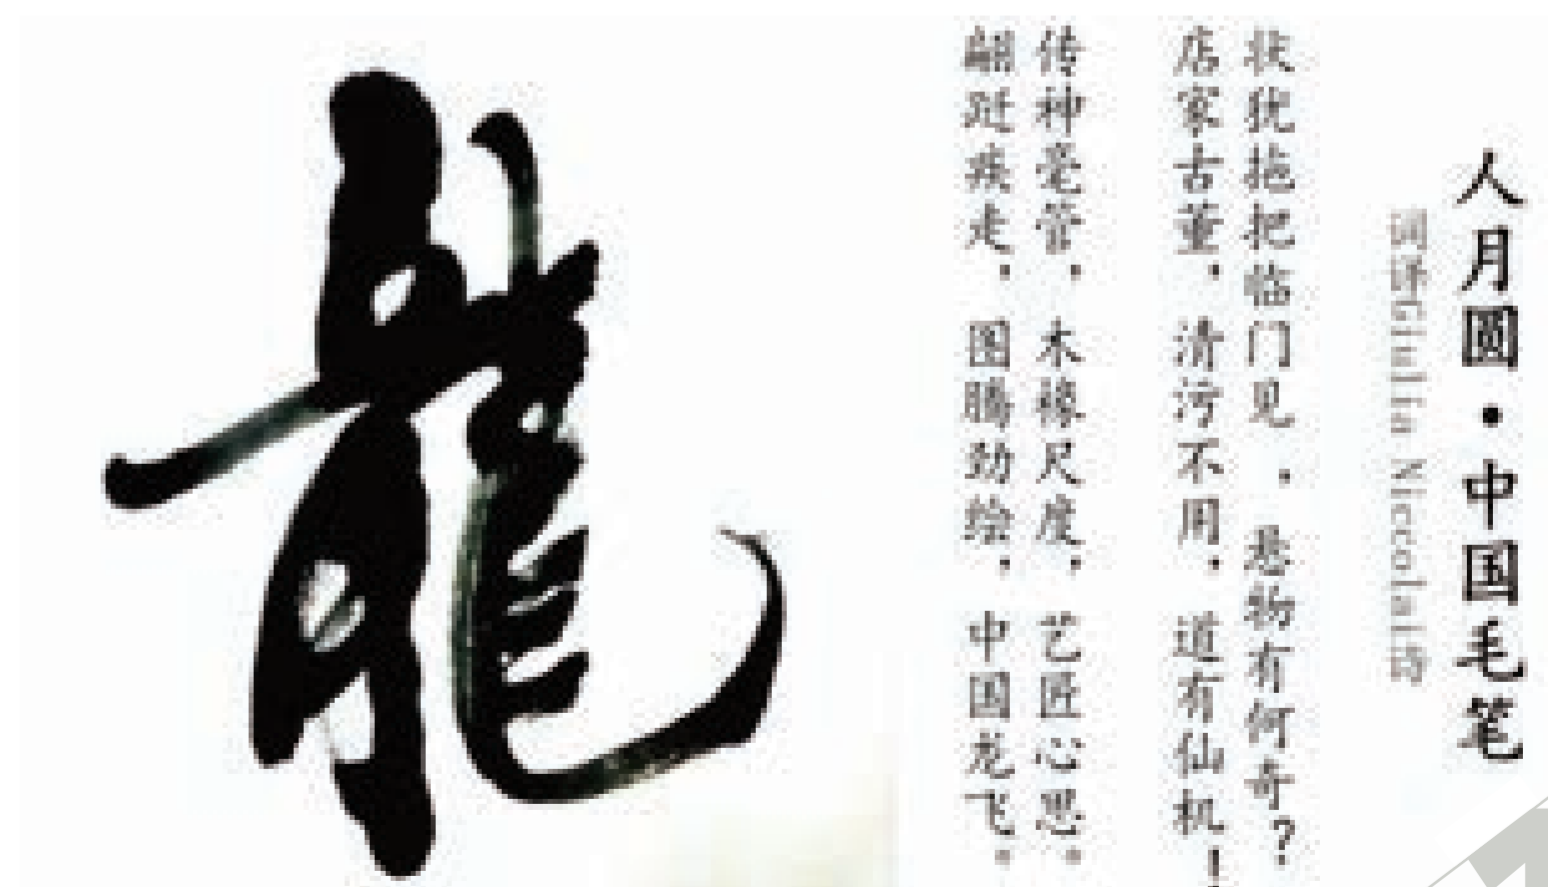 人月圆·中国毛笔
词译Giulia Niccolai诗
状犹拖把临门见，悬物有何奇？
店家古董，清污不用，道有仙机！
传神毫管，木椽尺度，艺匠心思。
翩跹疾走，图腾劲绘，中国龙飞。
龍